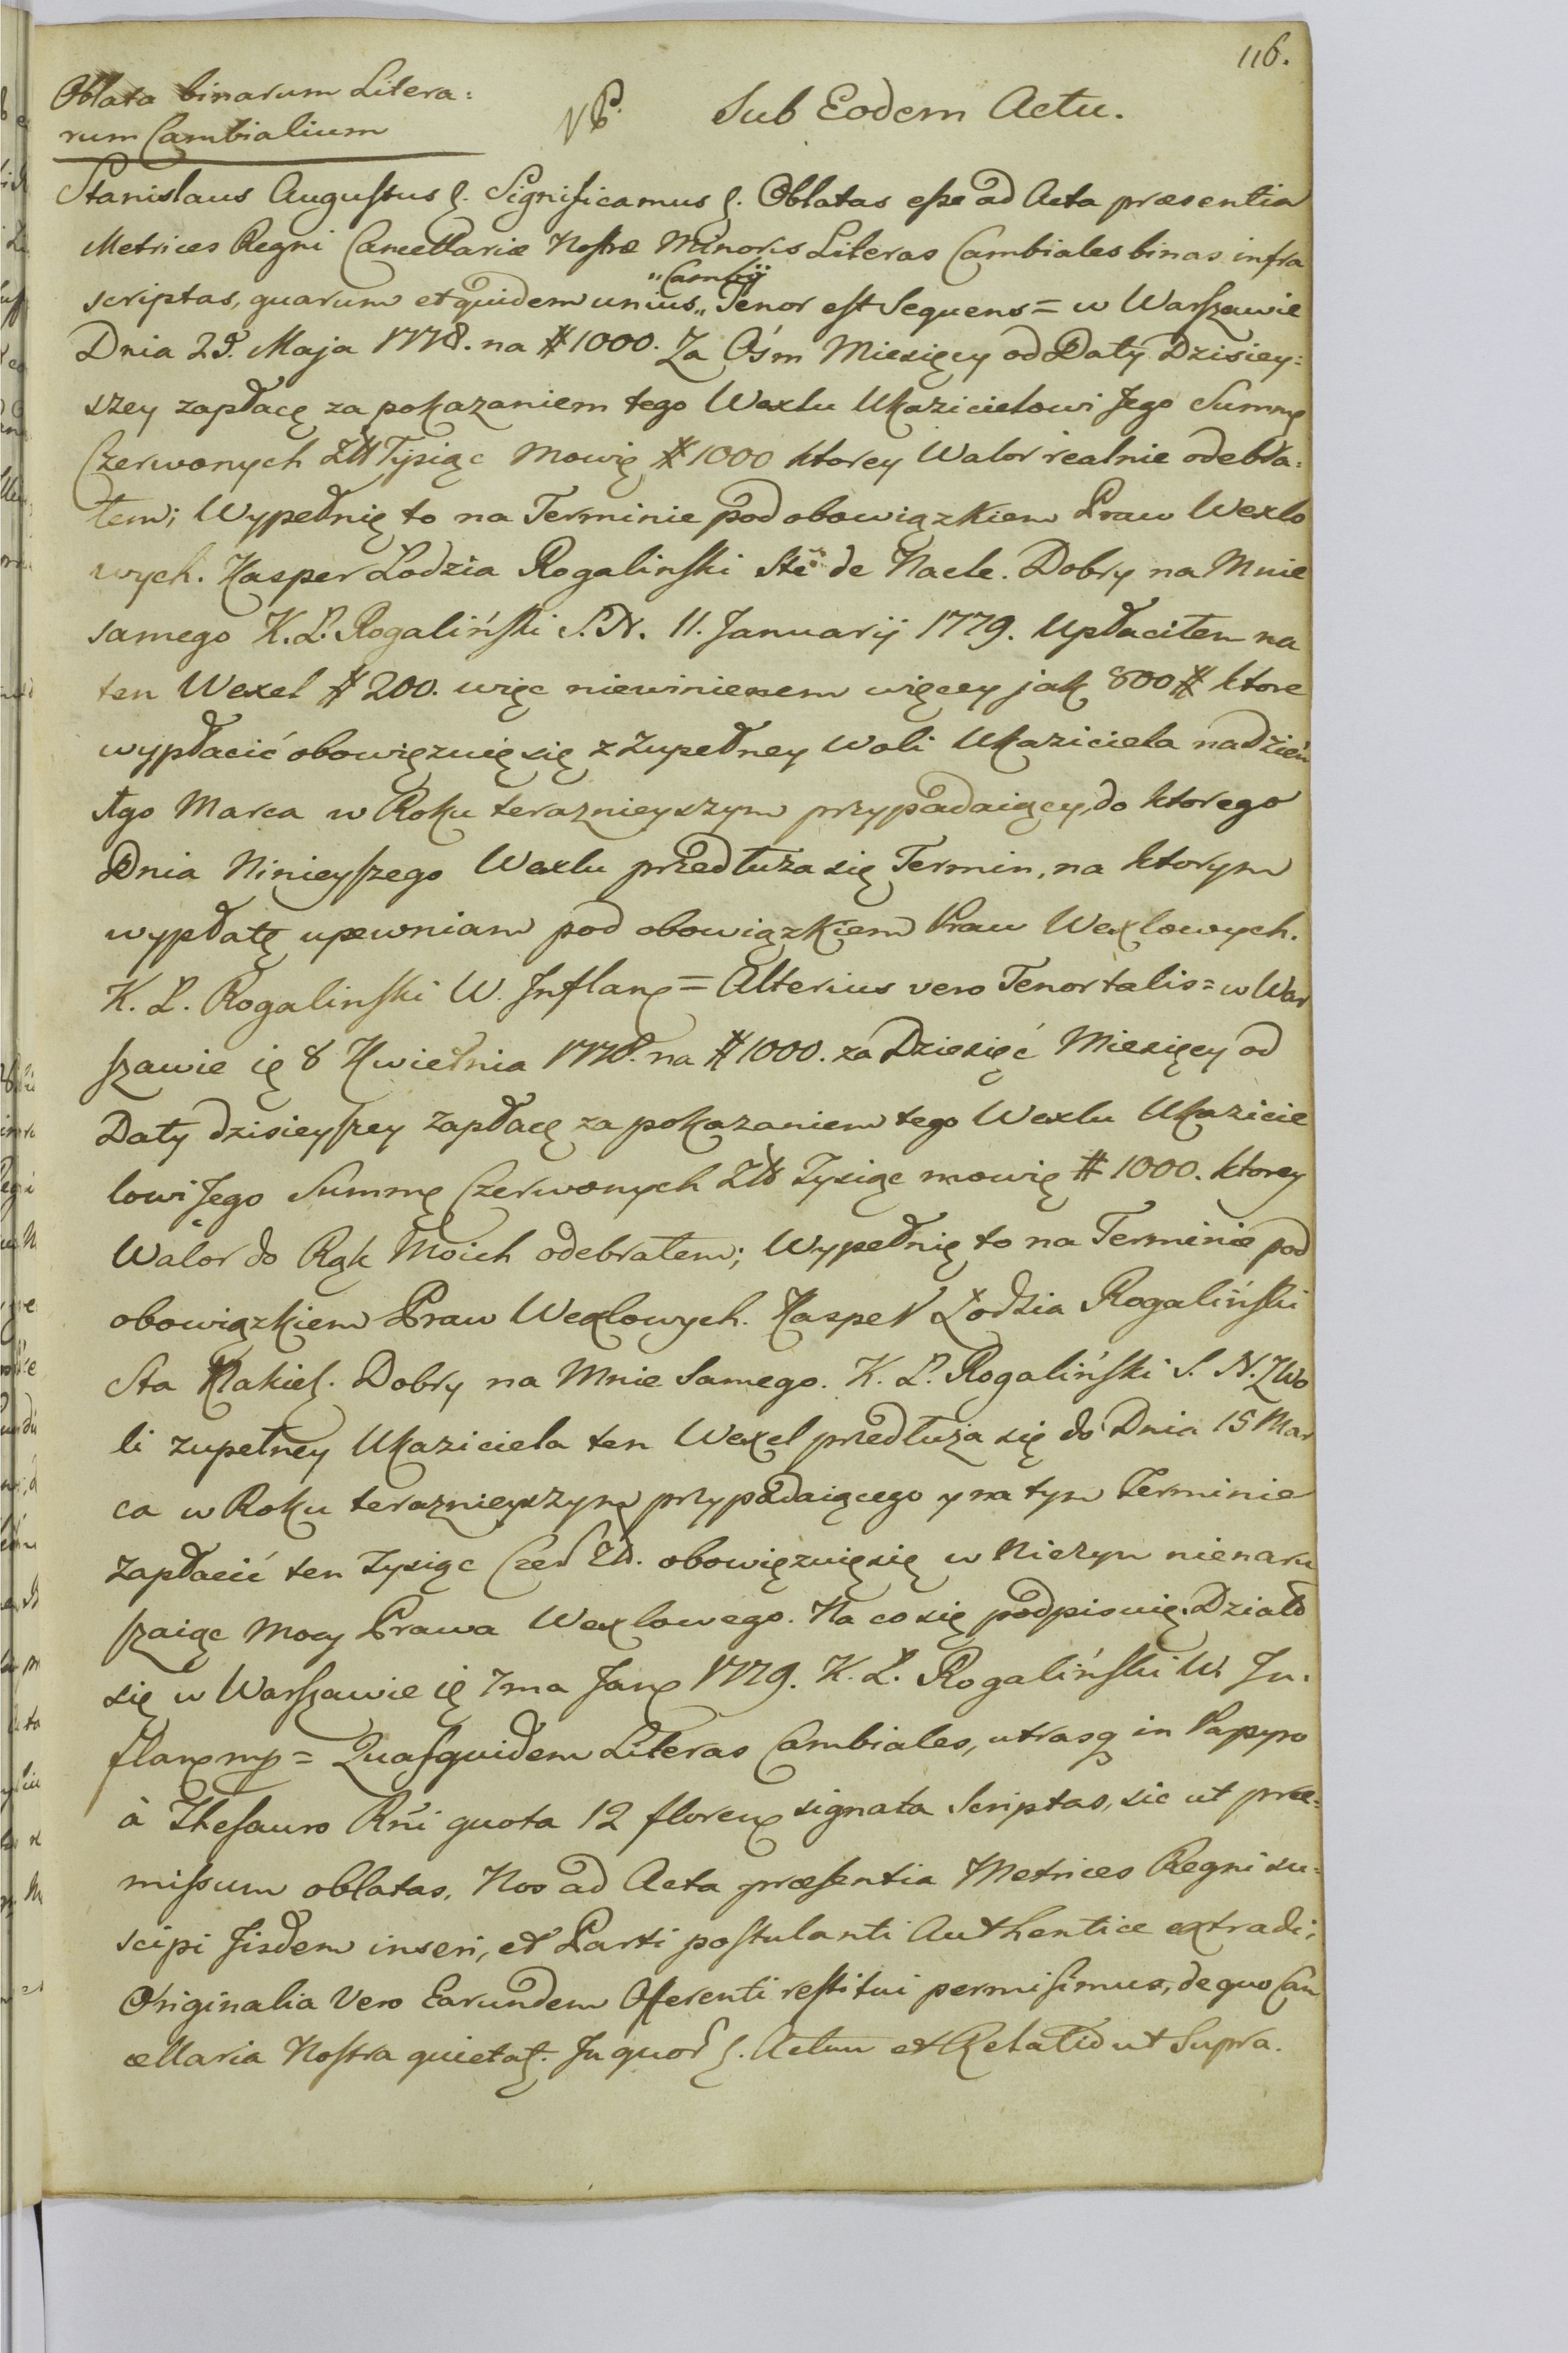 116.
Oblata binarum Litera:
rum Cambialium
Sub Eodem Actu.
Stanislaus Augustus &. Significamus &. Oblatas eße ad Acta præsentia
Metrices Regni Cancellariæ Nostræ Minoris Literas Cambiales binas infra
scriptas, quarum et quidem unius „Cambij„ Tenor est Sequens = w Warszawie
Dnia 29. Maja 1778. na # 1000. Za Ośm Miesięcy od Daty Dzisiey:
szey zapłacę za pokazaniem tego Wexlu Ukazicielowi Jego Summę
Czerwonych Złł Tysiąc mowię # 1000 ktorey Walor realnie odebra:
łem; Wypełnię to na Terminie pod obowiązkiem Praw Wexlo
wych. Kasper Lodzia Rogalinski Stã de Nacle. Dobry na Mnie
samego K. L. Rogaliński S. N. 11. Januarij 1779. Upłaciłem na
ten Wexel # 200. więc niewinienem więcey jak 800 # ktore
wypłacić obowięzuię się z Zupełney Woli Ukaziciela na dzień
1go Marca w Roku teraznieyszym przypadaiący, do ktorego
Dnia Ninieyszego Wexlu przedłuża się Termin, na ktorym
wypłatę upewniam pod obowiązkiem Praw Wexlowych.
K. L. Rogalinski W. Inflan = Alterius vero Tenor talis = w War
szawie ię 8 Kwietnia 1778. na # 1000. za Dziesięć Miesięcy od
Daty dzisieyszey zapłacę za pokazaniem tego Wexlu Ukazicie
lowi Jego Summę Czerwonych Złł Tysiąc mowię # 1000. ktorey
Walor do Rąk Moich odebrałem; Wypełnię to na Terminie pod
obowiązkiem Praw Wexlowych. Kasper Łodzia Rogaliński
Sta Nakiel. Dobry na Mnie Samego. K. L. Rogaliński S. N. Z Wo
li zupełney Ukaziciela ten Wexel przedłuża się do Dnia 15 Mar
ca w Roku teraznieyszym przypadaiącego y na tym Terminie
zapłacić ten Tysiąc Czer Zł. obowięzuię się w Niczym nienaru
szaiąc Mocy Prawa Wexlowego. Na co się podpisuię. Działo
się w Warszawie ię 7ma Jan 1779. K. L. Rogaliński W. In:
flan mp = Quasquidem Literas Cambiales, utrasq in Papyro
à Thesauro Rñi quota 12 floren signata Scriptas, sic ut præ:
missum oblatas, Nos ad Acta præsentia Metrices Regni su:
scipi Jisdem inseri, et Parti postulanti Authentice extradi;
Originalia Vero Earundem Offerenti restitui permisimus, de quo Can
cellaria Nostra quietat. In quor &. Actum et Relatio ut Supra.